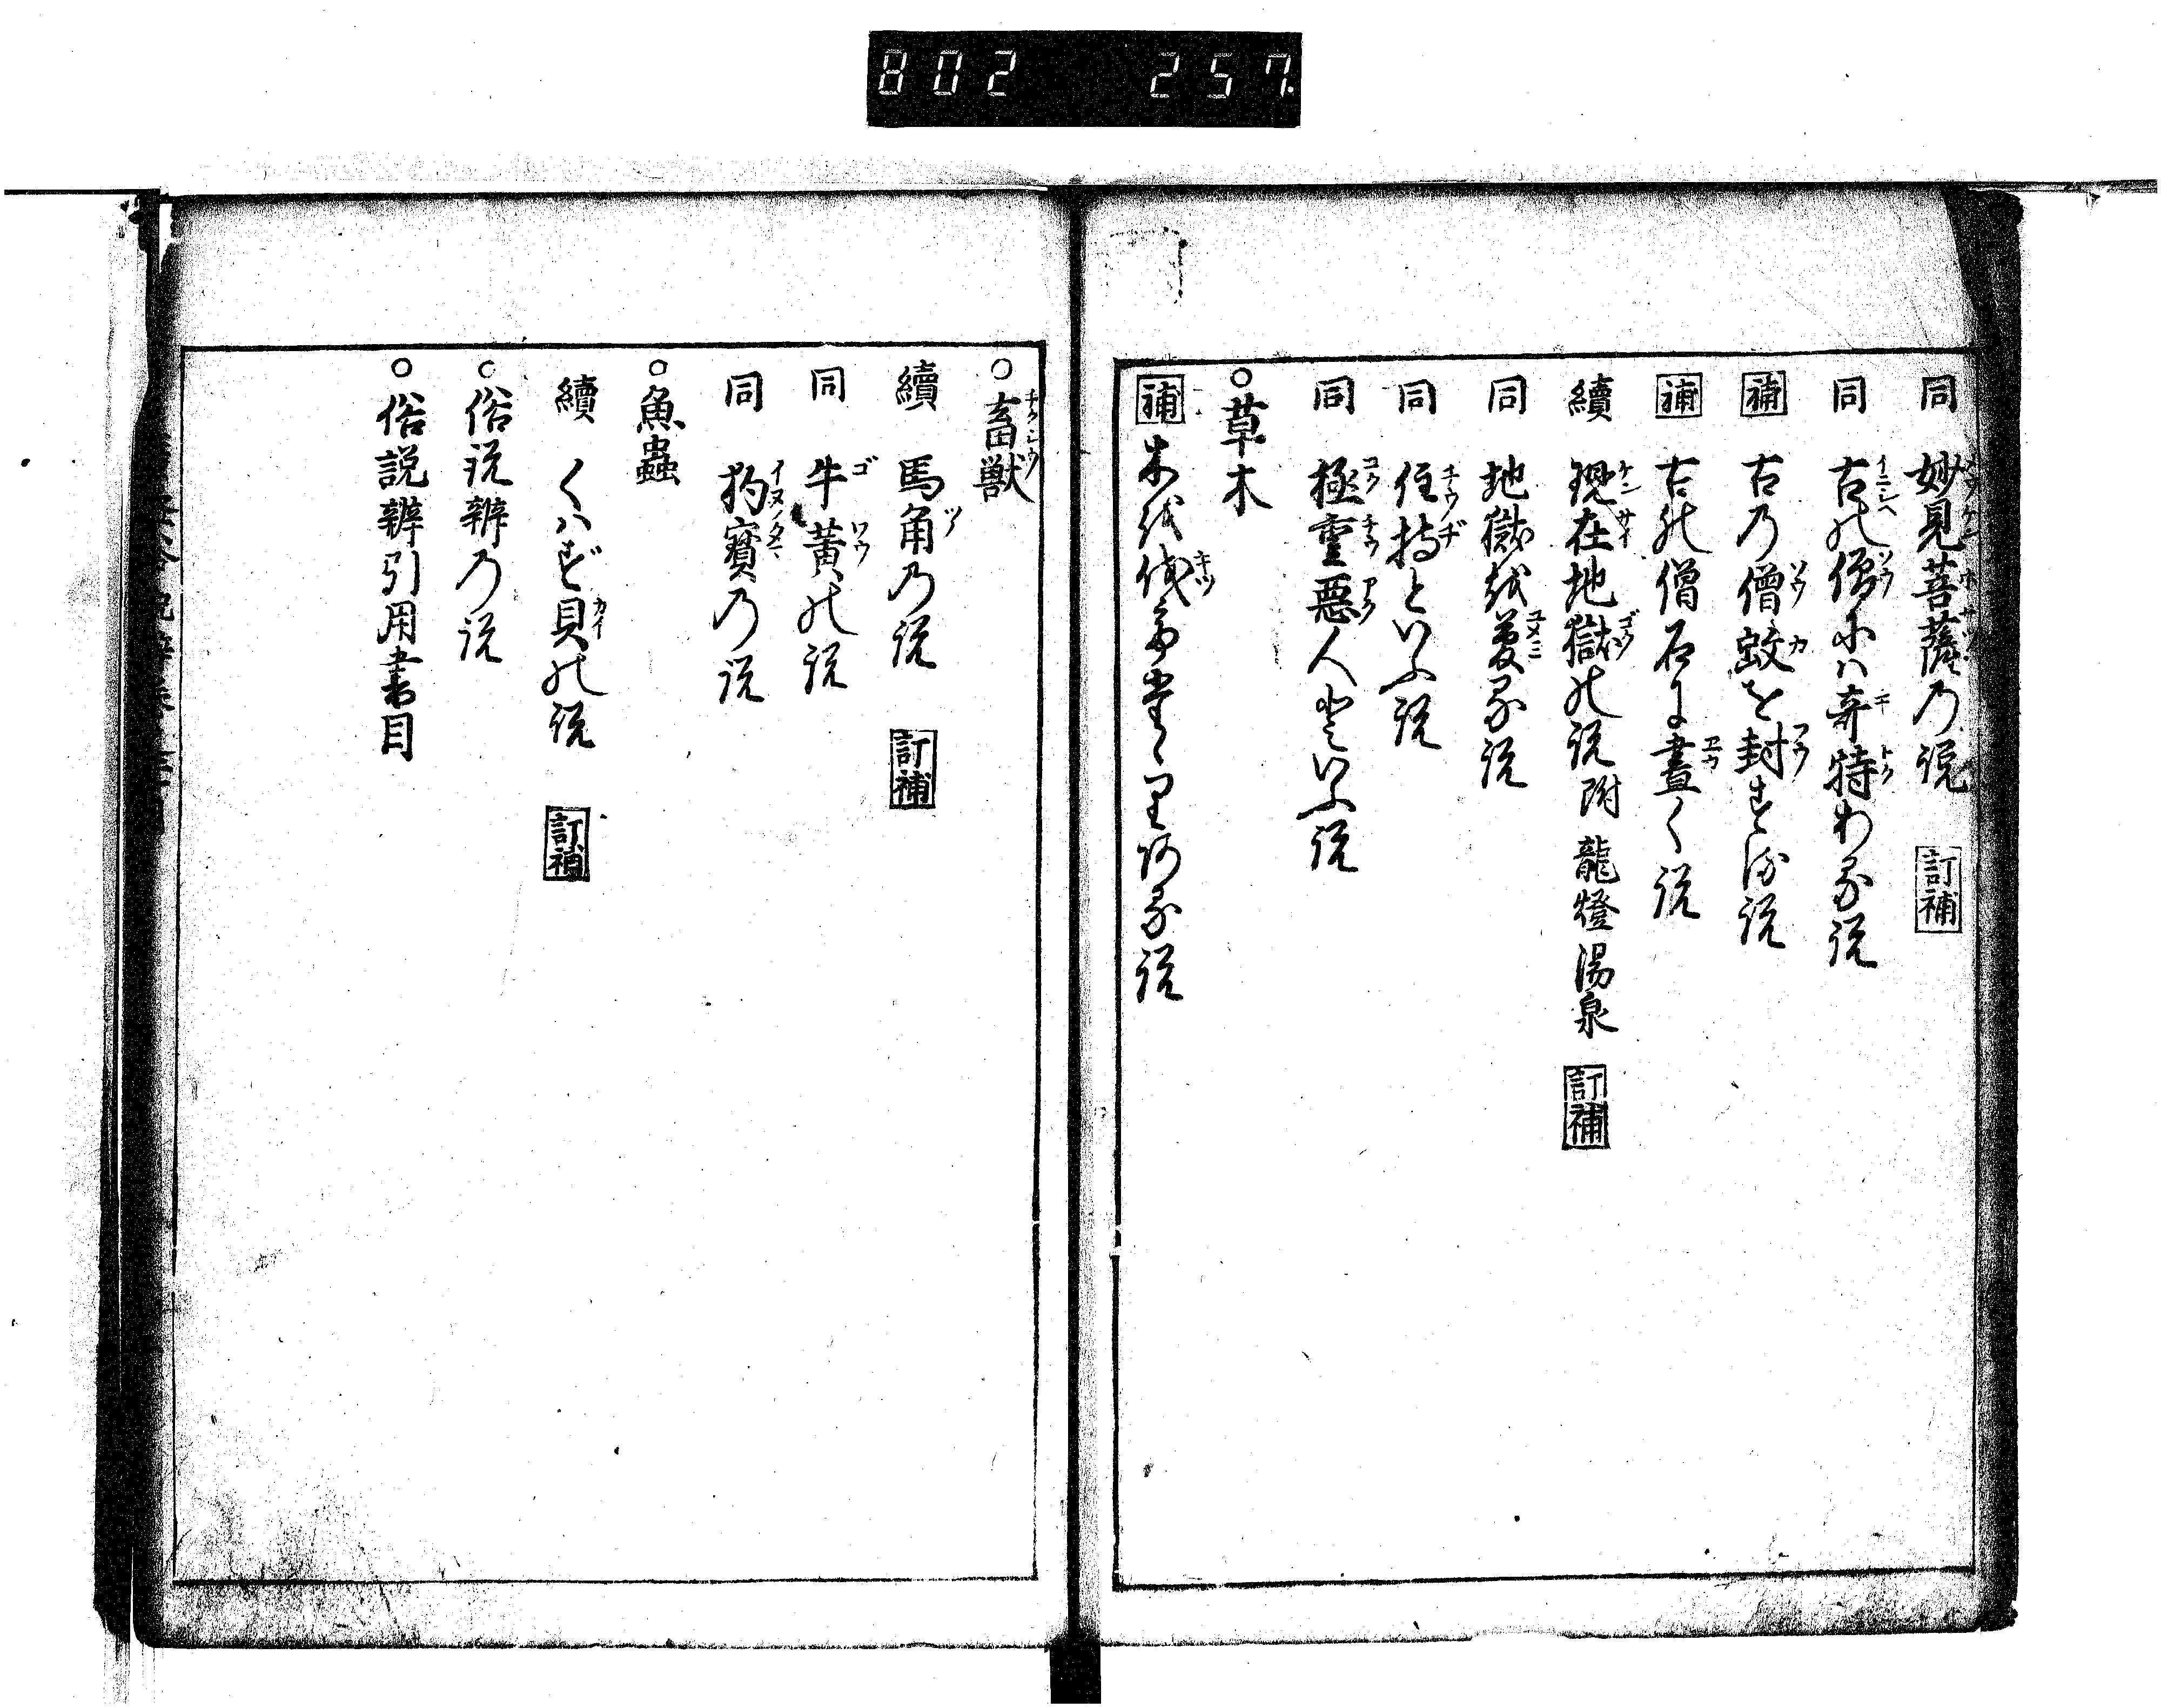 802 257
同 妙見菩薩乃説 訂補
同 古の僧には奇特ある説
補 古乃僧蚊を封ずる説
補 古の僧石に畫く説
續 現在地獄の説 附 龍燈湯泉 訂補
同 地獄を夢みる説
同 住持といふ説
同 極重惡人といふ説
○草木
補 木を伐たゝりある説
○畜獣
續 馬角乃説 訂補
同 牛黄の説
同 狗寳乃説
○魚蟲
續 くはず貝の説 訂補
○俗説辨乃説
○俗説辨引用書目